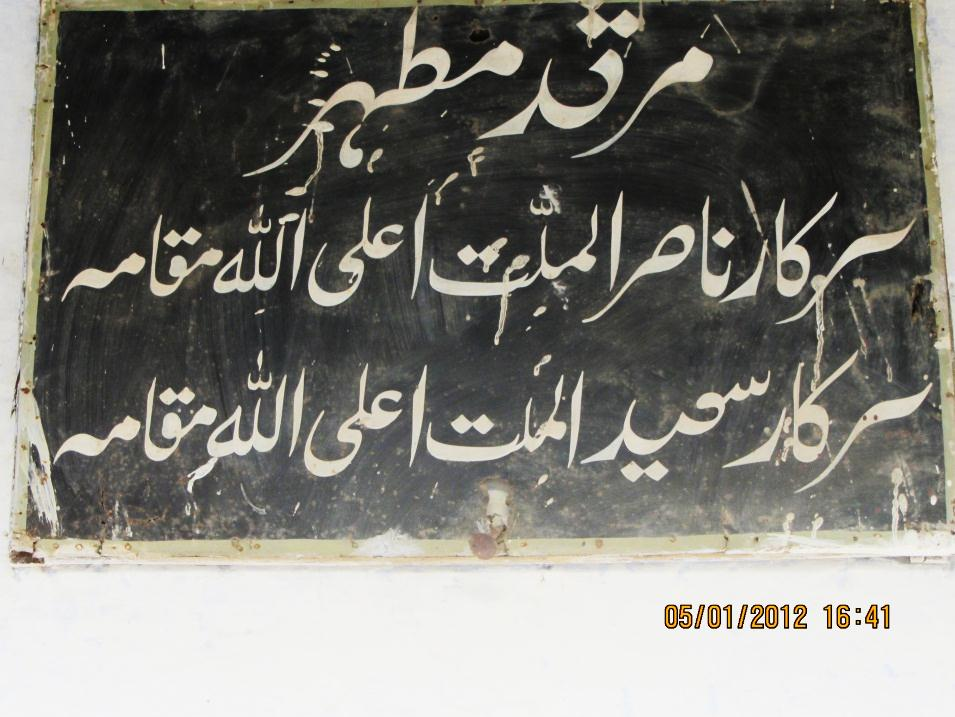 مرقد مطہر
سرکار ناصر الملّت أعلی اللّٰه مقامہ
سرکار سعید الملت اعلی اللّٰه مقامہ
05/01/2012 16:41